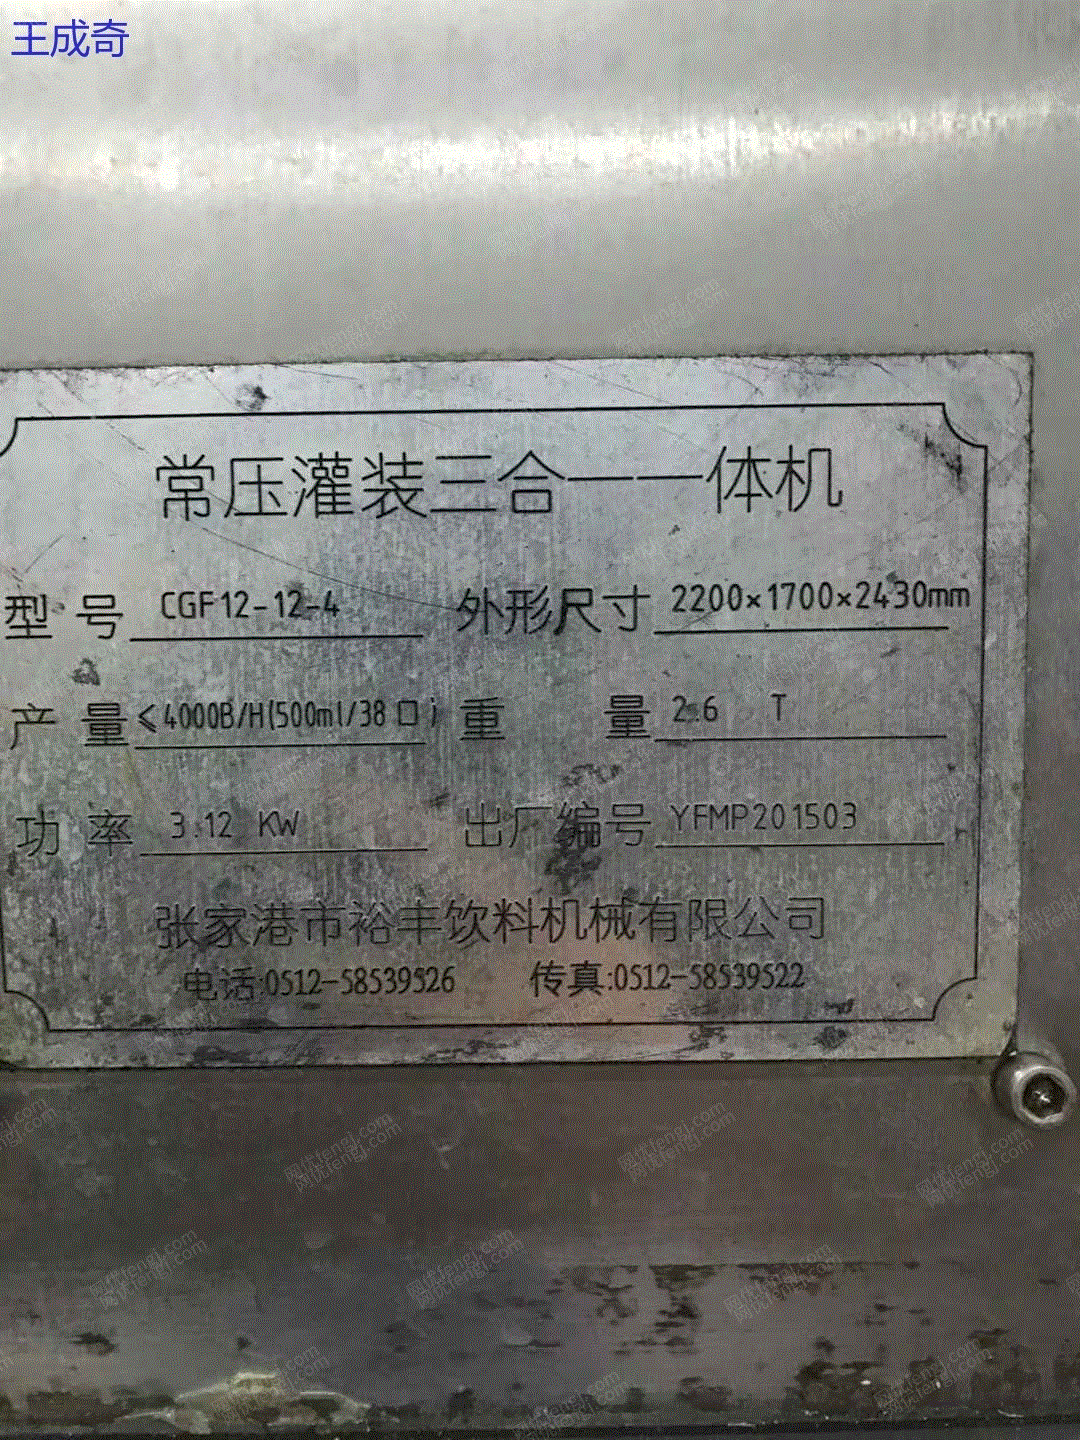 王成奇
常压灌装三合一一体机
型号 CGF12-12-4 外形尺寸 2200×1700×2430mm
产量 ≤4000B/H(500ml/38口) 重量 2.6 T
功率 3.12 KW 出厂编号 YFMP201503
张家港市裕丰饮料机械有限公司
电话:0512-58539526 传真:0512-58539522